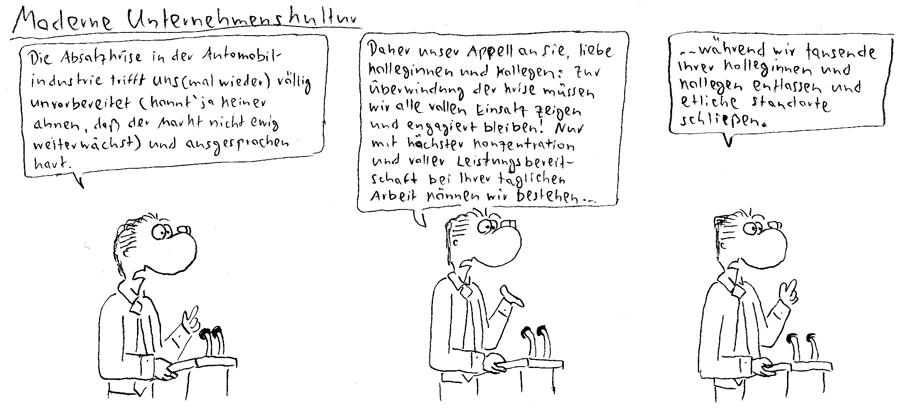 Moderne Unternehmenskultur
Die Absatzkrise in der Automobil-
industrie trifft uns (mal wieder) völlig
unvorbereitet (konnt' ja keiner
ahnen, daß der Markt nicht ewig
weiterwächst) und ausgesprochen
hart.
Daher unser Appell an sie, liebe
Kolleginnen und Kollegen: Zur
Überwindung der Krise müssen
wir alle vollen Einsatz zeigen
und engagiert bleiben! Nur
mit höchster Konzentration
und voller Leistungsbereit-
schaft bei Ihrer täglichen
Arbeit können wir bestehen...
...während wir tausende
Ihrer Kolleginnen und
Kollegen entlassen und
etliche Standorte
schließen.